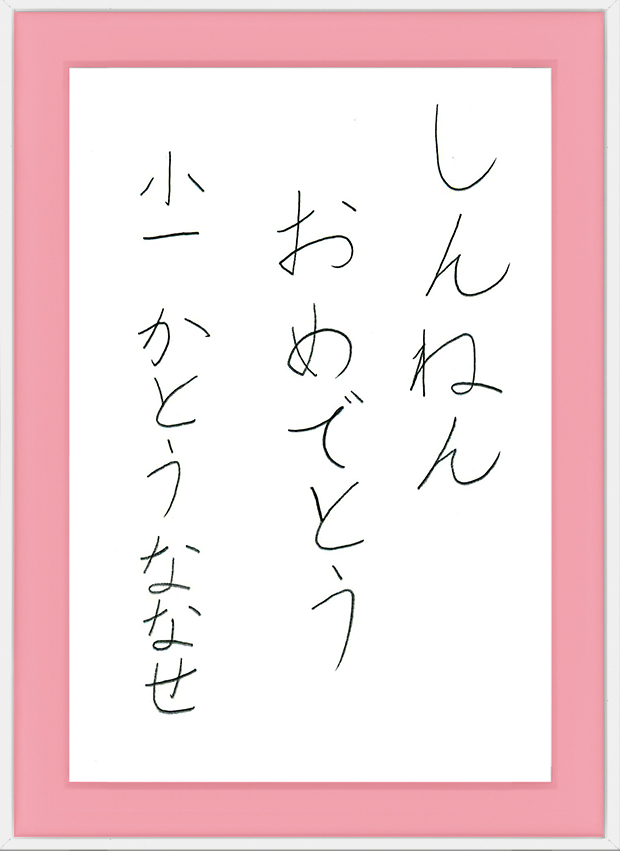 しんねん
おめでとう
小一 かとうななせ